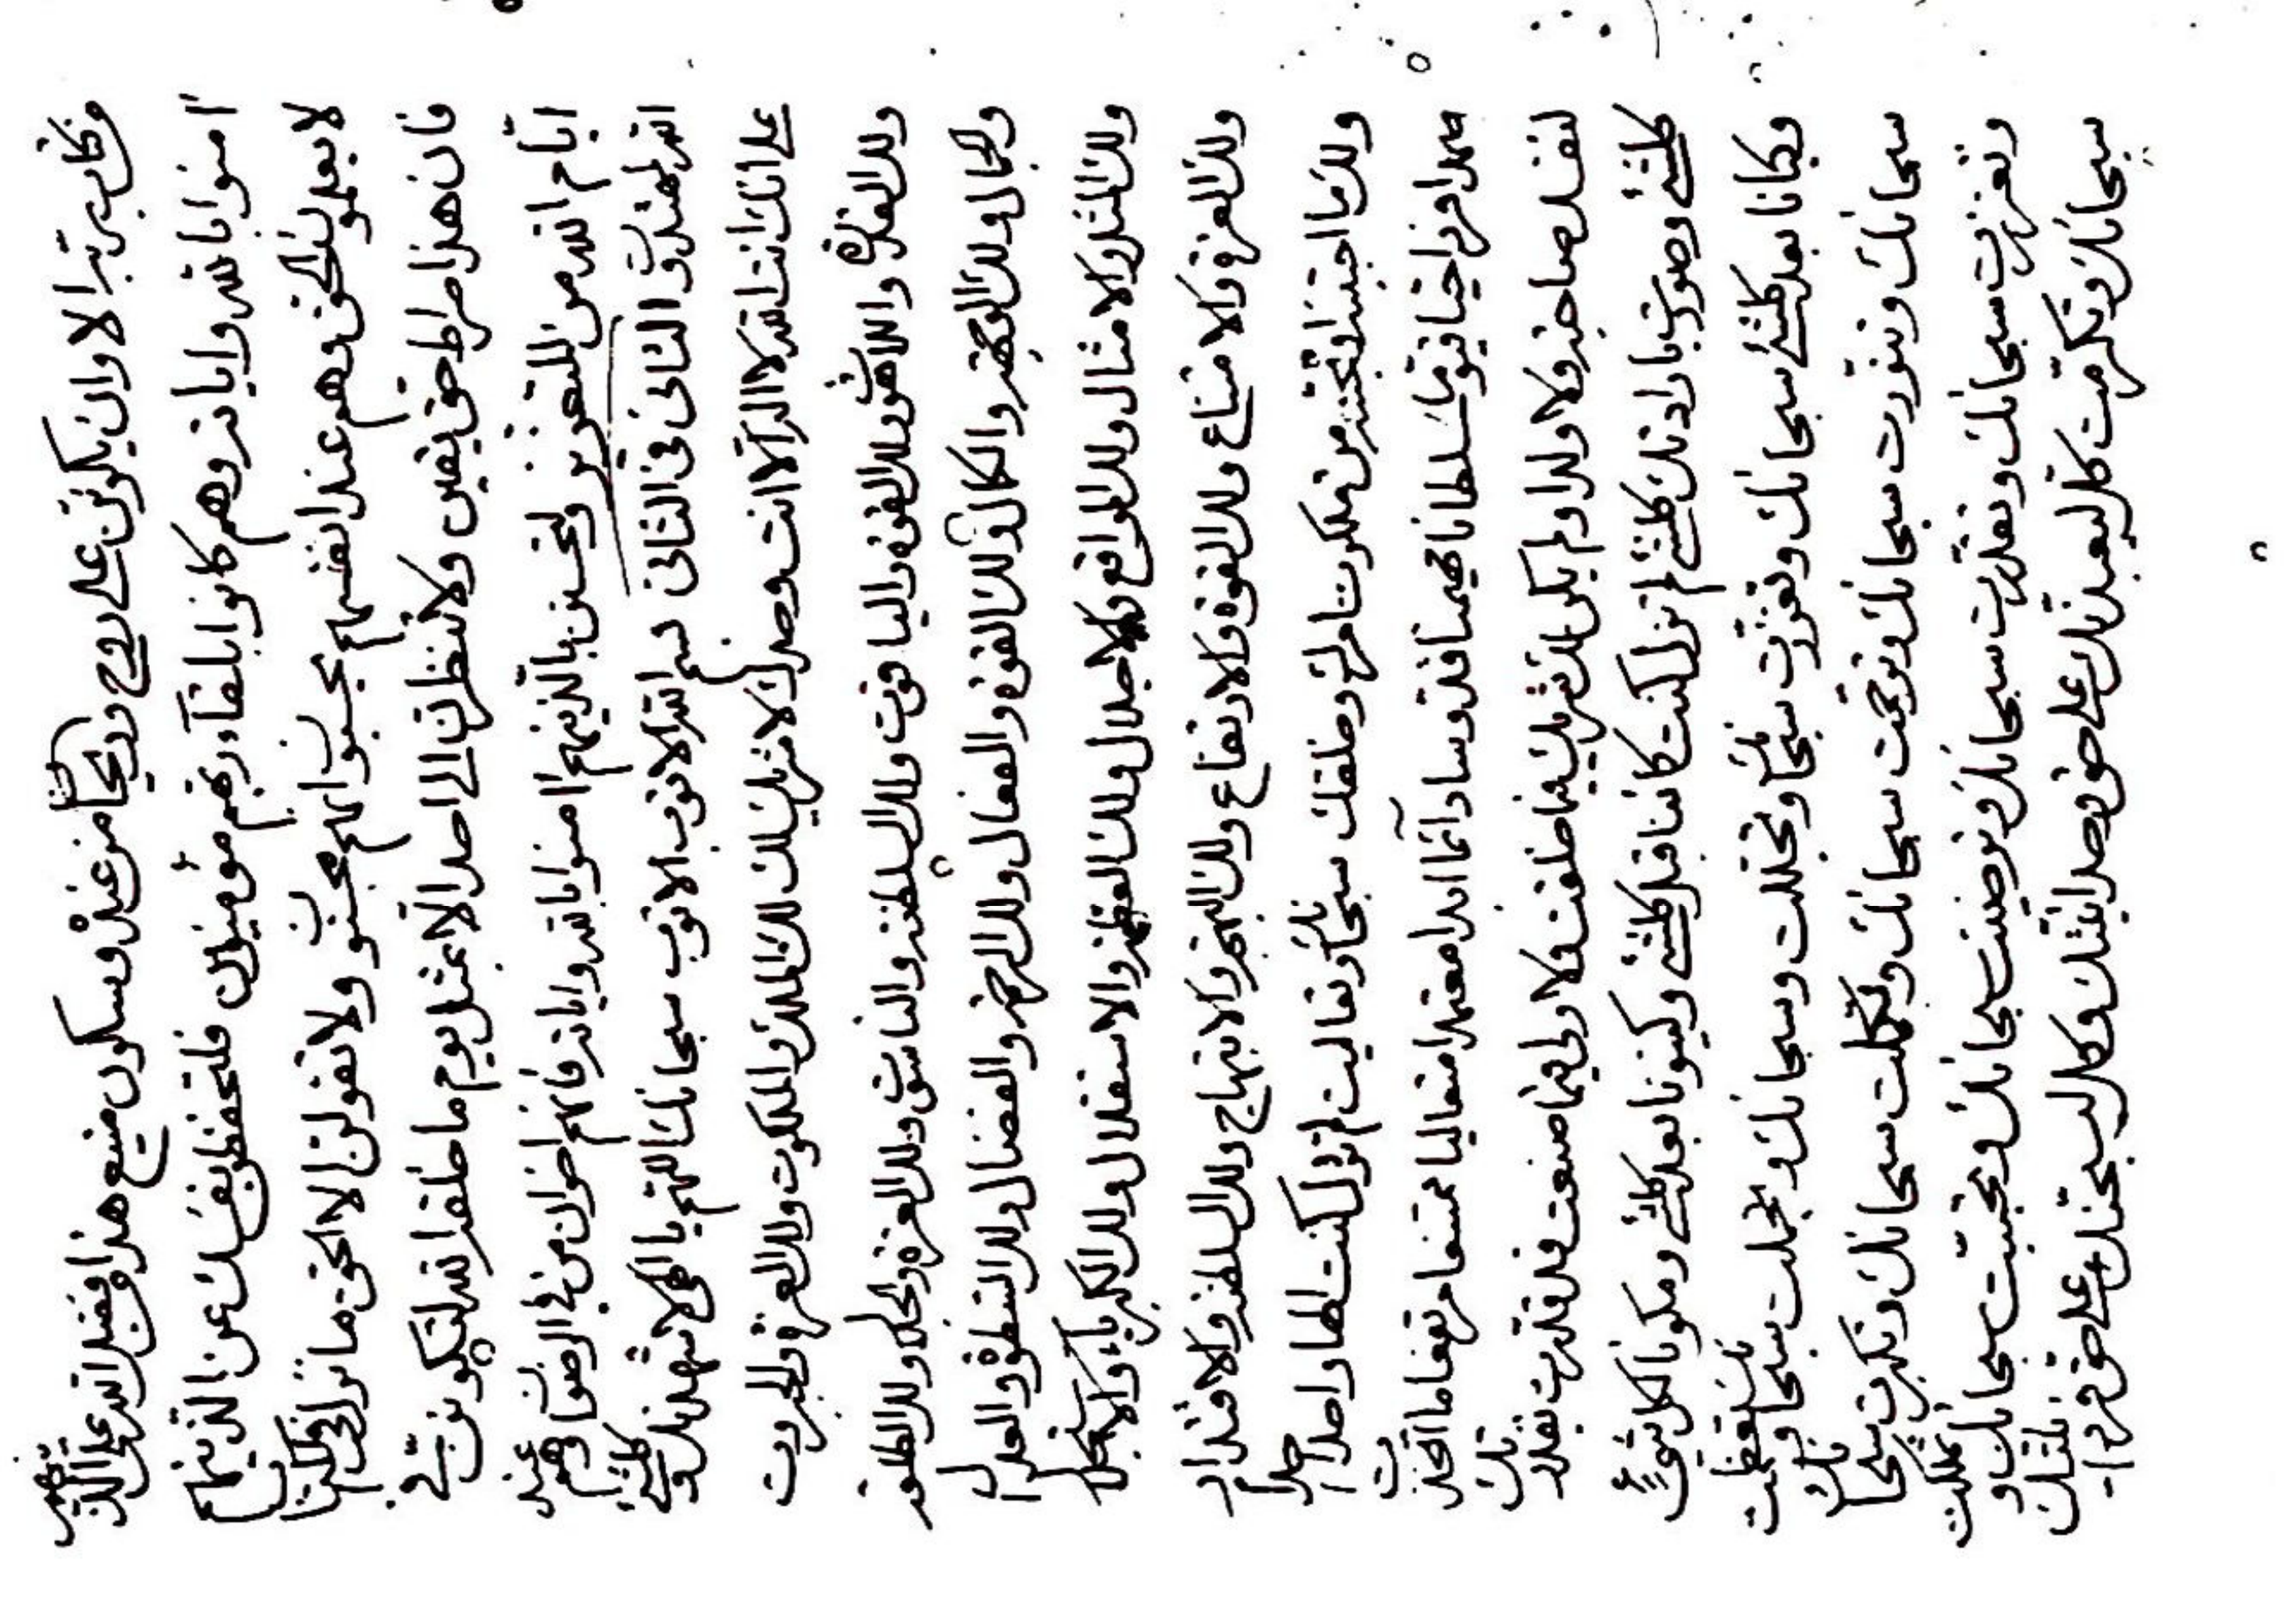 وكان به تبر الا وان يكونن على روح وريحان من عنده وسكون منيع هذا وفضل الله على الذينهم
امنوا بالله واياته وهم كانوا بلقاء ربهم مؤمنون فلتحفظ نفسك عن الذينهم
لا يعلمون الحق وهم عند انفسهم يحسبون انهم محسنون ولا تقولن الا الحق ما نزل في الكتاب
فان هذا صراط حق يقين ولا تنظرن الى احد الا بمثل يوم ما خلقه الله لتكونن في
ايام الله من المتقين ولتحسنن بالذينهم امنوا بالله واياته فانهم اخوان من في الرضوان وهم عند
الله لمهتدون الثانى فى الثانى بسم الله الاقرب الاقرب سبحانك اللهم يا الهى لاشهدنك وكلشئ
على انك انت الله لا اله الا انت وحدك لا شريك لك لك الملك والملكوت ولك العز والجبروت
ولك القدرة واللاهوت ولك القوة والياقوت ولك السلطنة والناسوت ولك العزة والجلال ولك الطلعة
والجمال ولك الوجهة والكمال ولك القوة والفعال ولك الرحمة والفضال ولك السطوة والعدال
ولك المثل والامثال ولك المواقع والاجلال ولك العظمة والاستقلال ولك الكبرياء والاستجلال
ولك العزة والامتناع ولك القوة والارتفاع ولك البهجة والابتهاج ولك السلطنة والاقتدار
ولك ما احببته او تحبنه من ملكوت امرك وخلقك سبحانك وتعاليت لم تزل كنت الها واحدا احدا
صمدا فردا حيا قيوما سلطانا مهيمنا قدوسا دائما ابدا معتمدا متعاليا ممتنعا مرتفعا ما اتخذت
لنفسك صاحبة ولا ولدا ولم يكن لك شريك فيما خلقت ولا ولى فيما صنعت قد قدرت بقدرتك
كلشئ وصورت بارادتك كلشئ لم تزل كنت كائنا قبل كلشئ وكينونا بعد كلشئ ومكونا لكل شئ
وكيانا بعد كلشئ سبحانك وتعززت سبحانك وتجللت وسبحانك وتجملت سبحانك وتعظمت
سبحانك وتنورت سبحانك وترحمت سبحانك وتكملت سبحانك وتكبرت سبحانك
وتعززت سبحانك وتقدرت سبحانك وترضيت سبحانك وتحببت سبحانك وتملكت
سبحانك وتكرمت كل ليعبدنك على حق وحدانيتك وكل ليسبحنك على حق فردانيتك